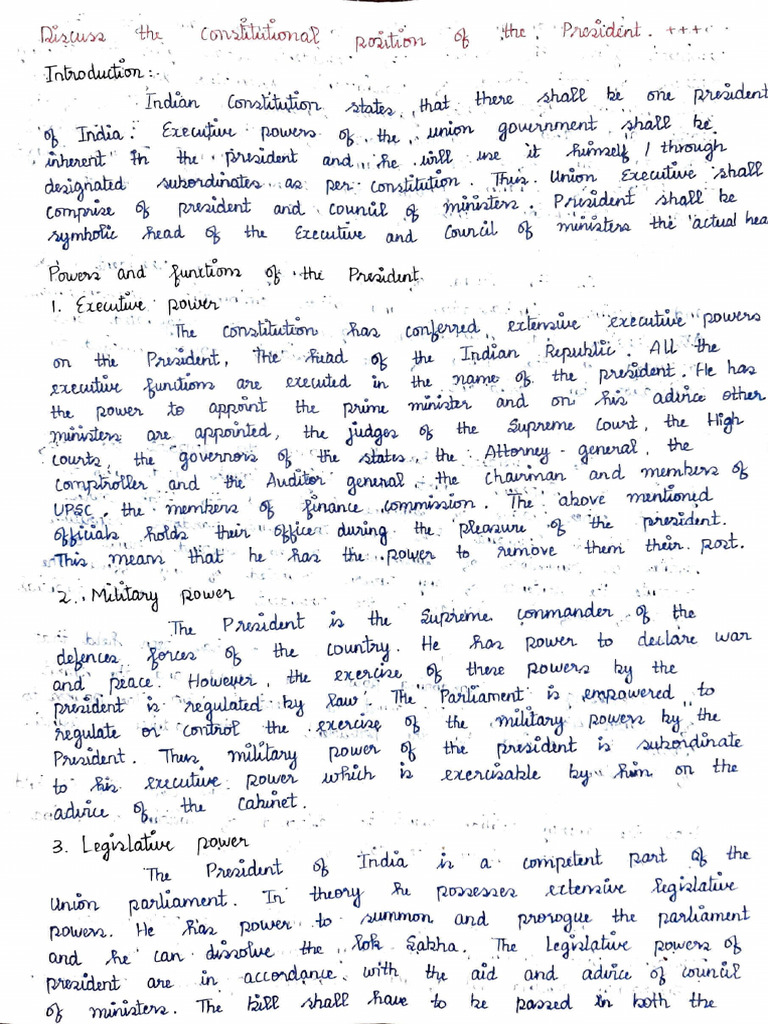 Discuss the constitutional position of the President. +++
Introduction:-
Indian Constitution states that there shall be one president
of India. Executive powers of the union government shall be
inherent in the president and he will use it himself / through
designated subordinates as per constitution. Thus Union Executive shall
comprise of president and council of ministers. President shall be
symbolic head of the Executive and Council of ministers the actual hea
Powers and functions of the President.
1. Executive power
The constitution has conferred extensive executive powers
on the President, the head of the Indian Republic. All the
executive functions are executed in the name of the president. He has
the power to appoint the prime minister and on his advice other
ministers are appointed, the judges of the Supreme Court, the High
courts, the governors of the states, the Attorney-general, the
comptroller and the Auditor general, the chairman and members of
UPSC, the members of finance commission. The above mentioned
officials holds their office during the pleasure of the president.
This means that he has the power to remove them their post.
2. Military power
The President is the Supreme commander of the
defences forces of the country. He has power to declare war
and peace. However, the exercise of these powers by the
president is regulated by law. The Parliament is empowered to
regulate or control the exercise of the military powers by the
President. Thus military power of the president is subordinate
to his executive power which is exercisable by him on the
advice of the cabinet.
3. Legislative power
The President of India is a competent part of the
Union parliament. In theory he possesses extensive legislative
powers. He has power to summon and prorogue the parliament
and he can dissolve the Lok Sabha. The Legislative powers of
president are in accordance with the aid and advice of council
of ministers. The bill shall have to be passed in both the